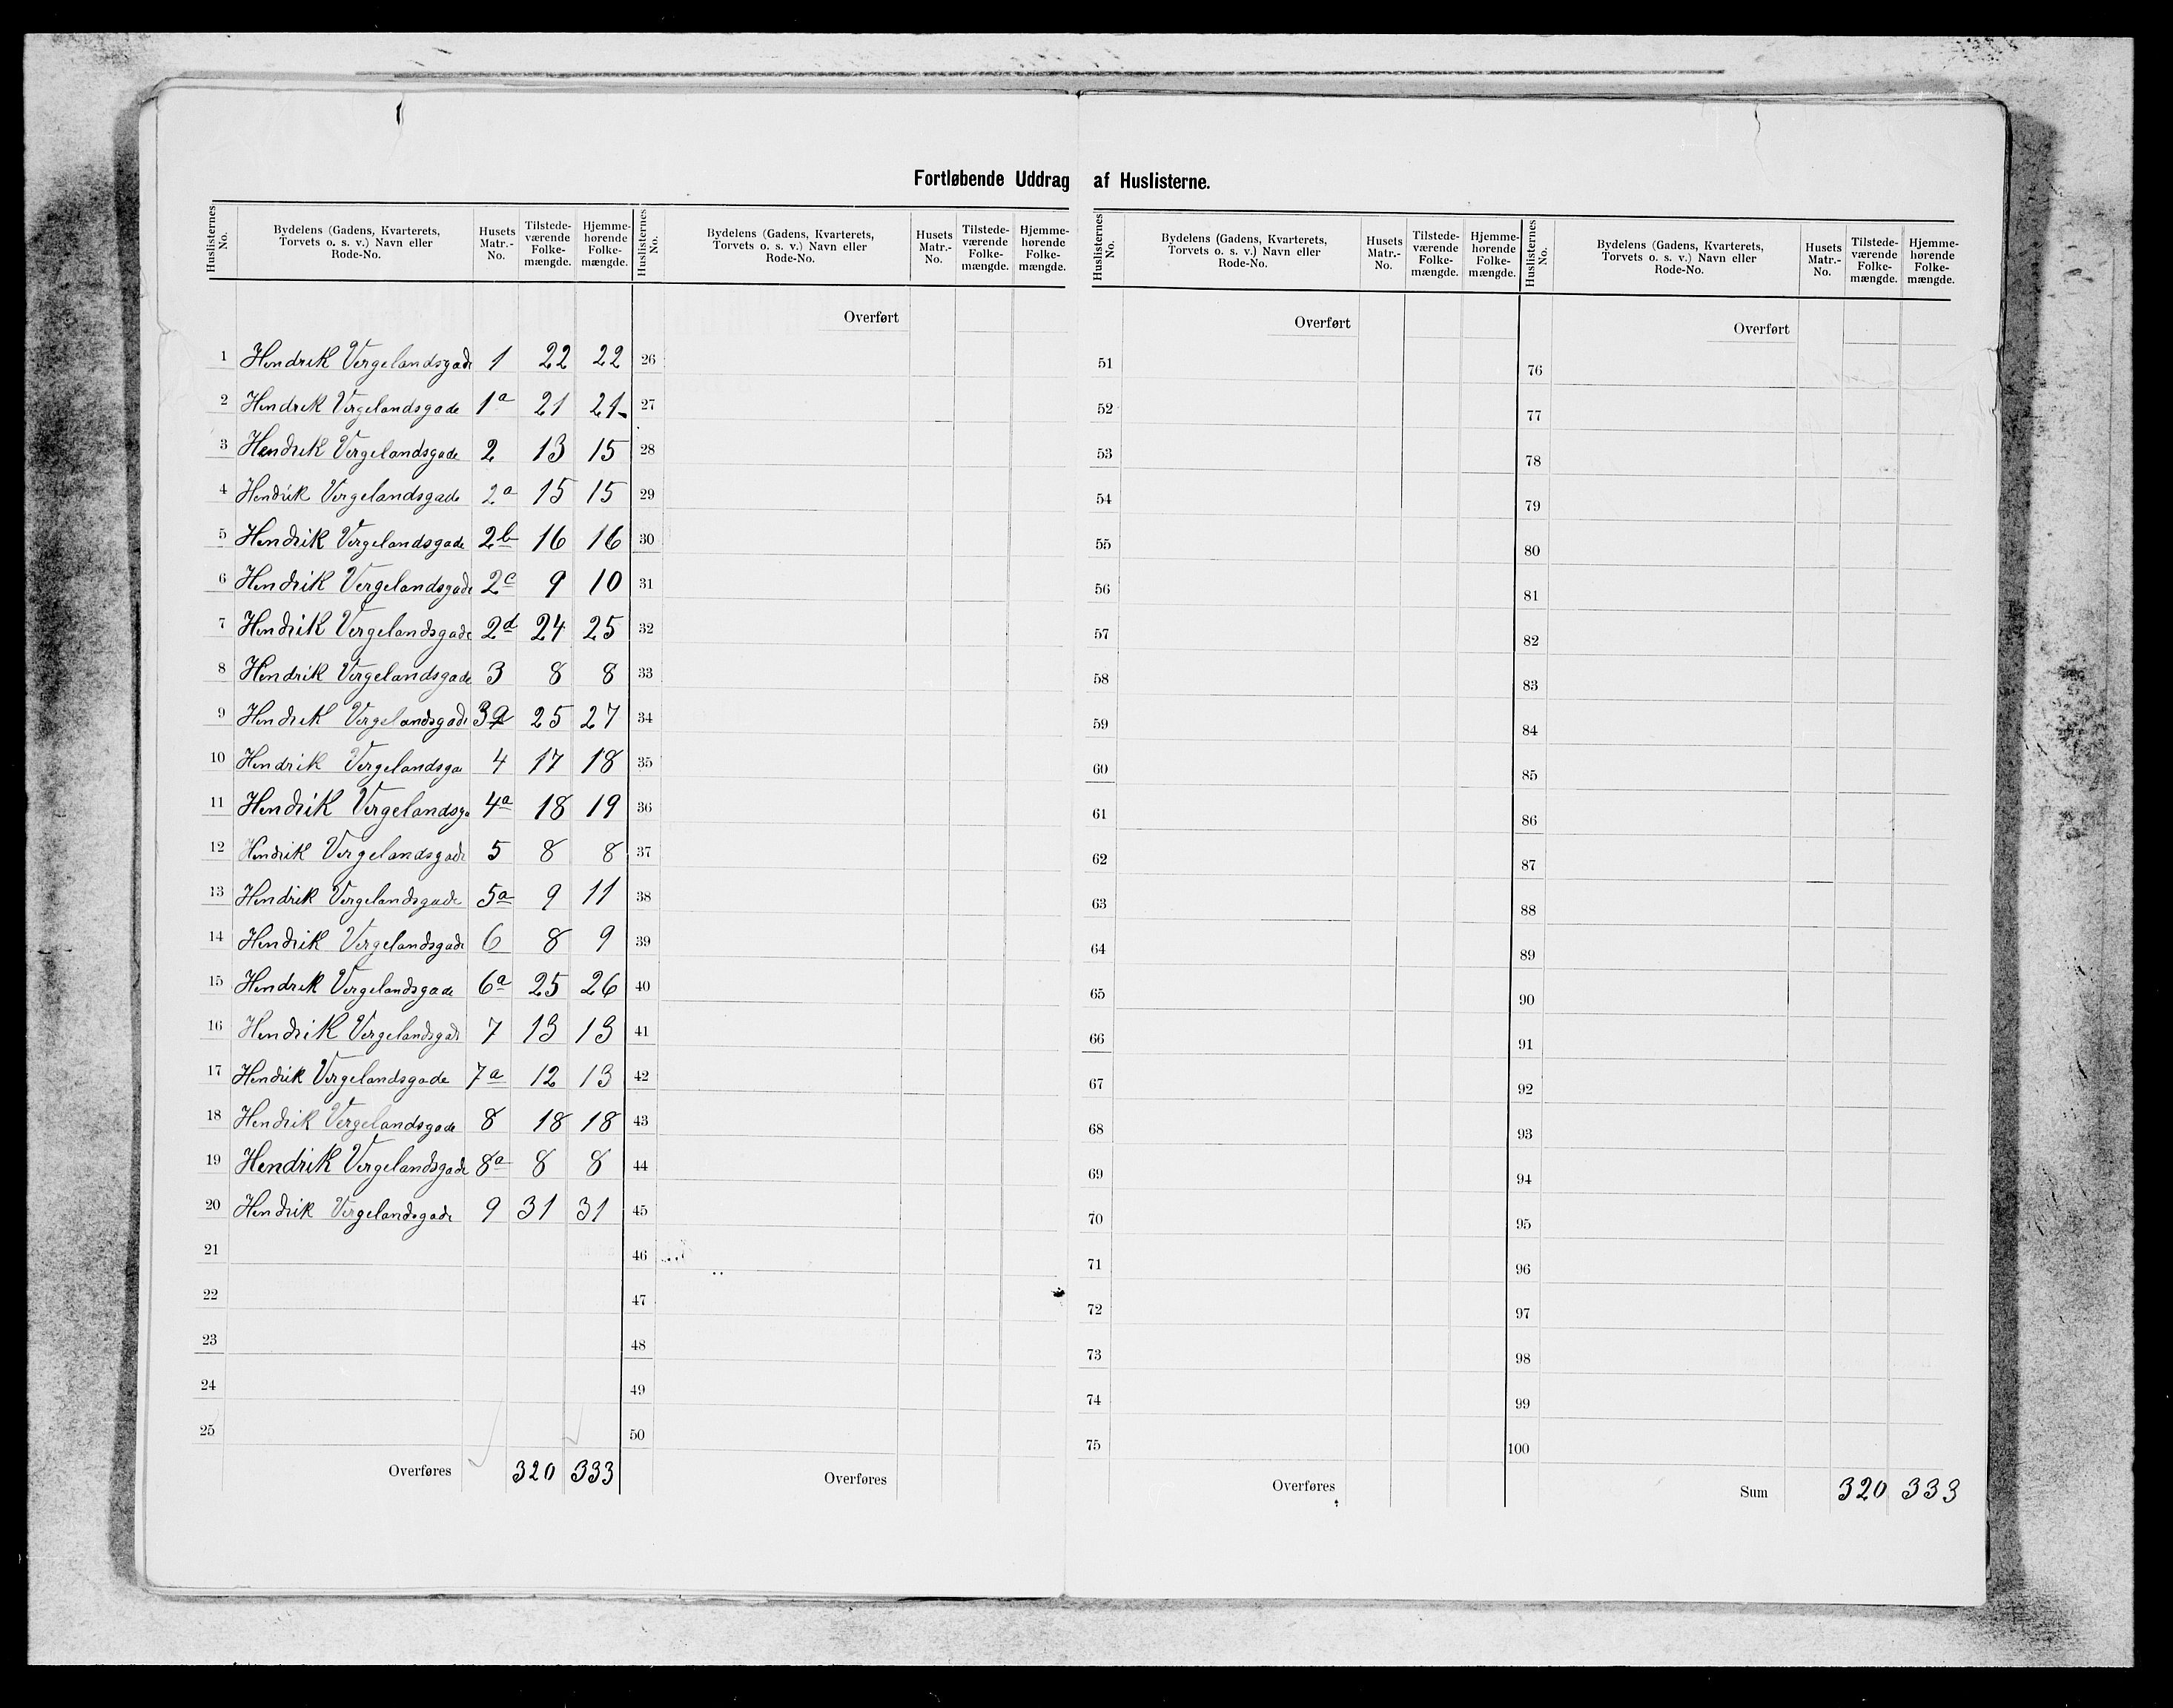 Fortløbende Uddrag af Huslisterne.
Huslisternes No. Bydelens (Gadens, Kvarterets, Torvets o. s. v.) Navn eller Rode-No. Husets Matr.-No. Tilstede-værende Folke-mængde. Hjemme-hørende Folke-mængde.
1 Hendrik Vergelandsgade 1 22 22
2 Hendrik Vergelandsgade 1a 21 21
3 Hendrik Vergelandsgade 2 13 15
4 Hendrik Vergelandsgade 2a 15 15
5 Hendrik Vergelandsgade 2b 16 16
6 Hendrik Vergelandsgade 2c 9 10
7 Hendrik Vergelandsgade 2d 24 25
8 Hendrik Vergelandsgade 3 8 8
9 Hendrik Vergelandsgade 3a 25 27
10 Hendrik Vergelandsga 4 17 18
11 Hendrik Vergelandsga 4a 18 19
12 Hendrik Vergelandsgade 5 8 8
13 Hendrik Vergelandsgade 5a 9 11
14 Hendrik Vergelandsgade 6 8 9
15 Hendrik Vergelandsgade 6a 25 26
16 Hendrik Vergelandsgade 7 13 13
17 Hendrik Vergelandsgade 7a 12 13
18 Hendrik Vergelandsgade 8 18 18
19 Hendrik Vergelandsgade 8a 8 8
20 Hendrik Vergelandsgade 9 31 31
21
22
23
24
25
Overføres 320 333
Huslisternes No. Bydelens (Gadens, Kvarterets, Torvets o. s. v.) Navn eller Rode-No. Husets Matr.-No. Tilstede-værende Folke-mængde. Hjemme-hørende Folke-mængde.
Overført
26
27
28
29
30
31
32
33
34
35
36
37
38
39
40
41
42
43
44
45
46
47
48
49
50
Overføres
Huslisternes No. Bydelens (Gadens, Kvarterets, Torvets o. s. v.) Navn eller Rode-No. Husets Matr.-No. Tilstede-værende Folke-mængde. Hjemme-hørende Folke-mængde.
Overført
51
52
53
54
55
56
57
58
59
60
61
62
63
64
65
66
67
68
69
70
71
72
73
74
75
Overføres
Huslisternes No. Bydelens (Gadens, Kvarterets, Torvets o. s. v.) Navn eller Rode-No. Husets Matr.-No. Tilstede-værende Folke-mængde. Hjemme-hørende Folke-mængde.
Overført
76
77
78
79
80
81
82
83
84
85
86
87
88
89
90
91
92
93
94
95
96
97
98
99
100
Sum 320 333